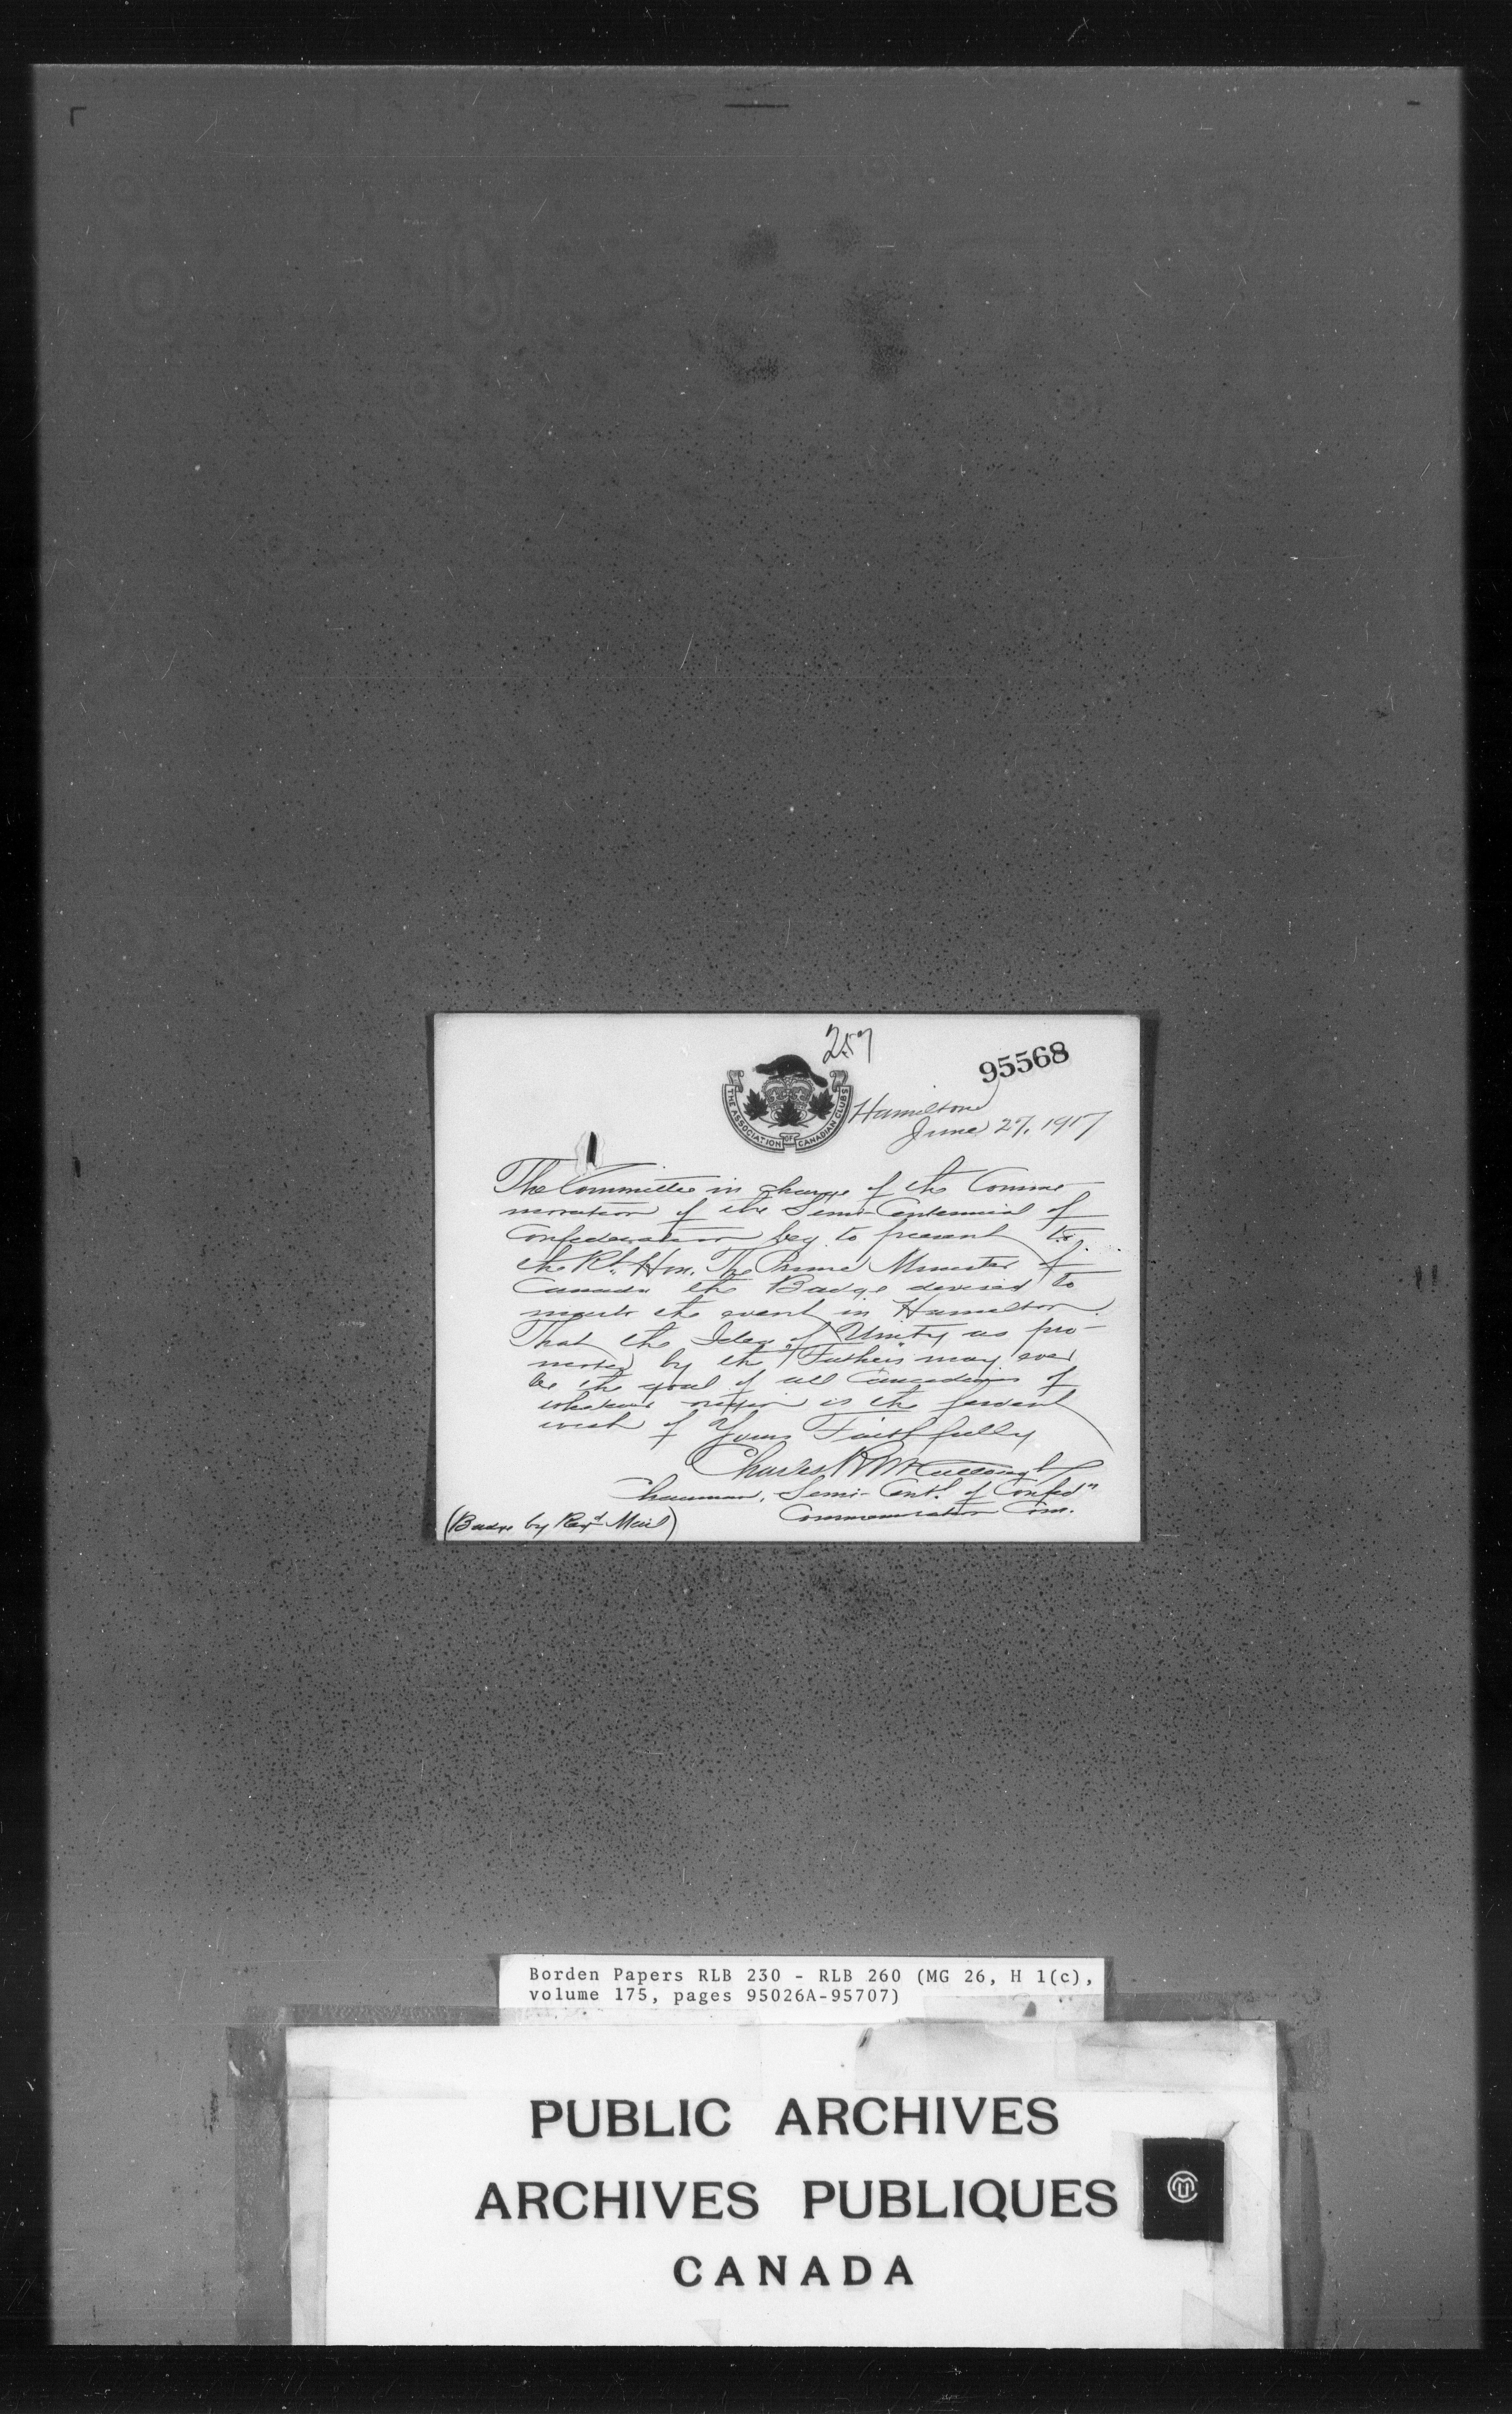 257
95568
THE ASSOCIATION OF CANADIAN CLUBS
Hamilton
June 27, 1917
The Committee in charge of the Comme-
moration of the Semi-Centennial of
Confederation beg to present to
the Rt. Hon. The Prime Minister of
Canada the Badge devised to
mark the event in Hamilton.
That the Idea of Unity as pro-
moted by the Fathers may ever
be the goal of all Canadians of
whatever origin is the fervent
wish of Yours Faithfully
Charles R McCullough
Chairman, Semi-Cent'l of Confed'n
Commemoration Com.
(Badge by Reg'd Mail)
Borden Papers RLB 230 - RLB 260 (MG 26, H 1(c),
volume 175, pages 95026A-95707)
PUBLIC ARCHIVES
ARCHIVES PUBLIQUES
CANADA